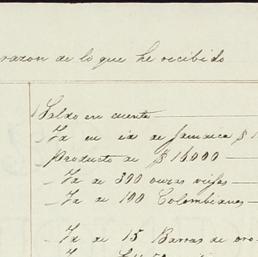 razon de lo que he recibido
Saldo en cuenta
Ya en id de Jamaica $ 1
Producto de $ 16000
Ya de 300 onzas viejas
Ya de 100 Colombianas
Ya de 15 Barras de oro